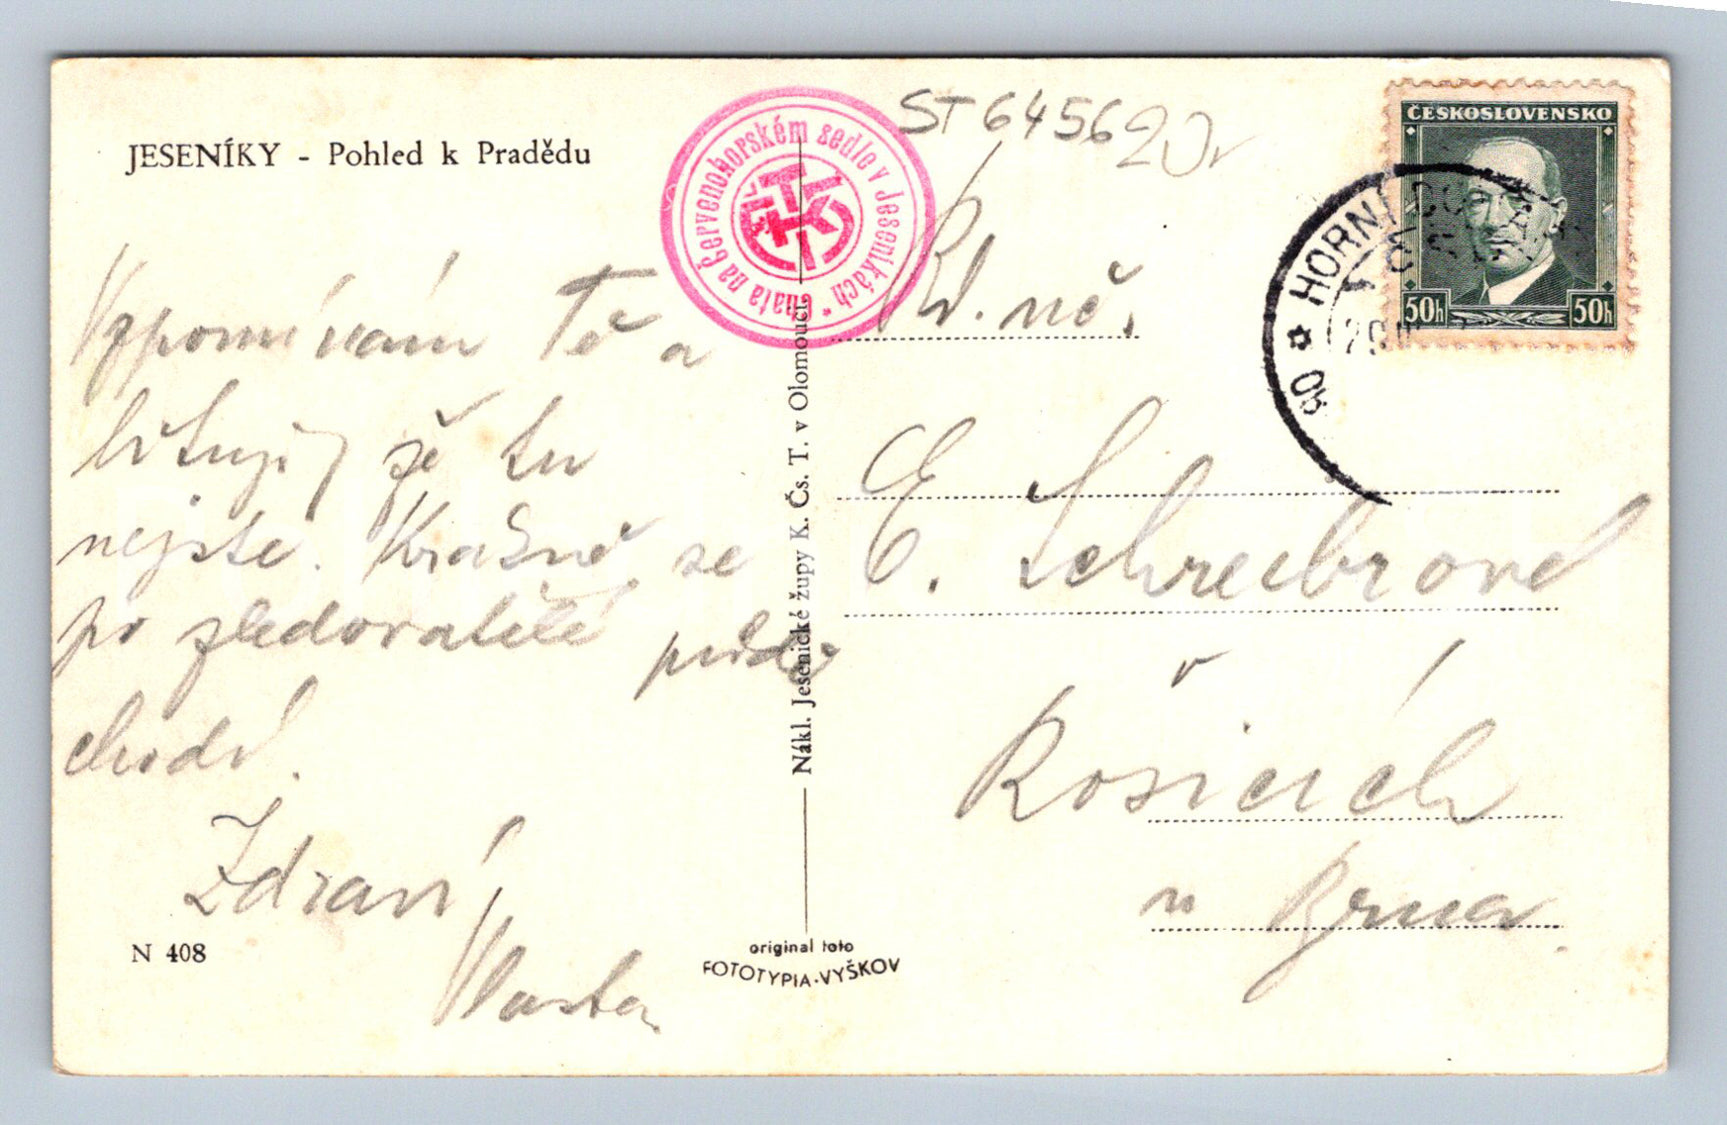 JESENÍKY - Pohled k Pradědu
Chata na Červenohorském sedle v Jeseníkách
KČST
ST 6456 20,-
ČESKOSLOVENSKO
50h 50h
HORNÍ
Vzpomínám Tě a
lituji, že tu
nejste. Krásně se
po zledovatělé půdě
chodí.
Zdraví
Vlasta
N 408
Nákl. Jesenické župy K. Čs. T. v Olomouci.
original foto
FOTOTYPIA-VYŠKOV
Vd. uč.
E. Schreibrová
v
Rosicích
u Brna.